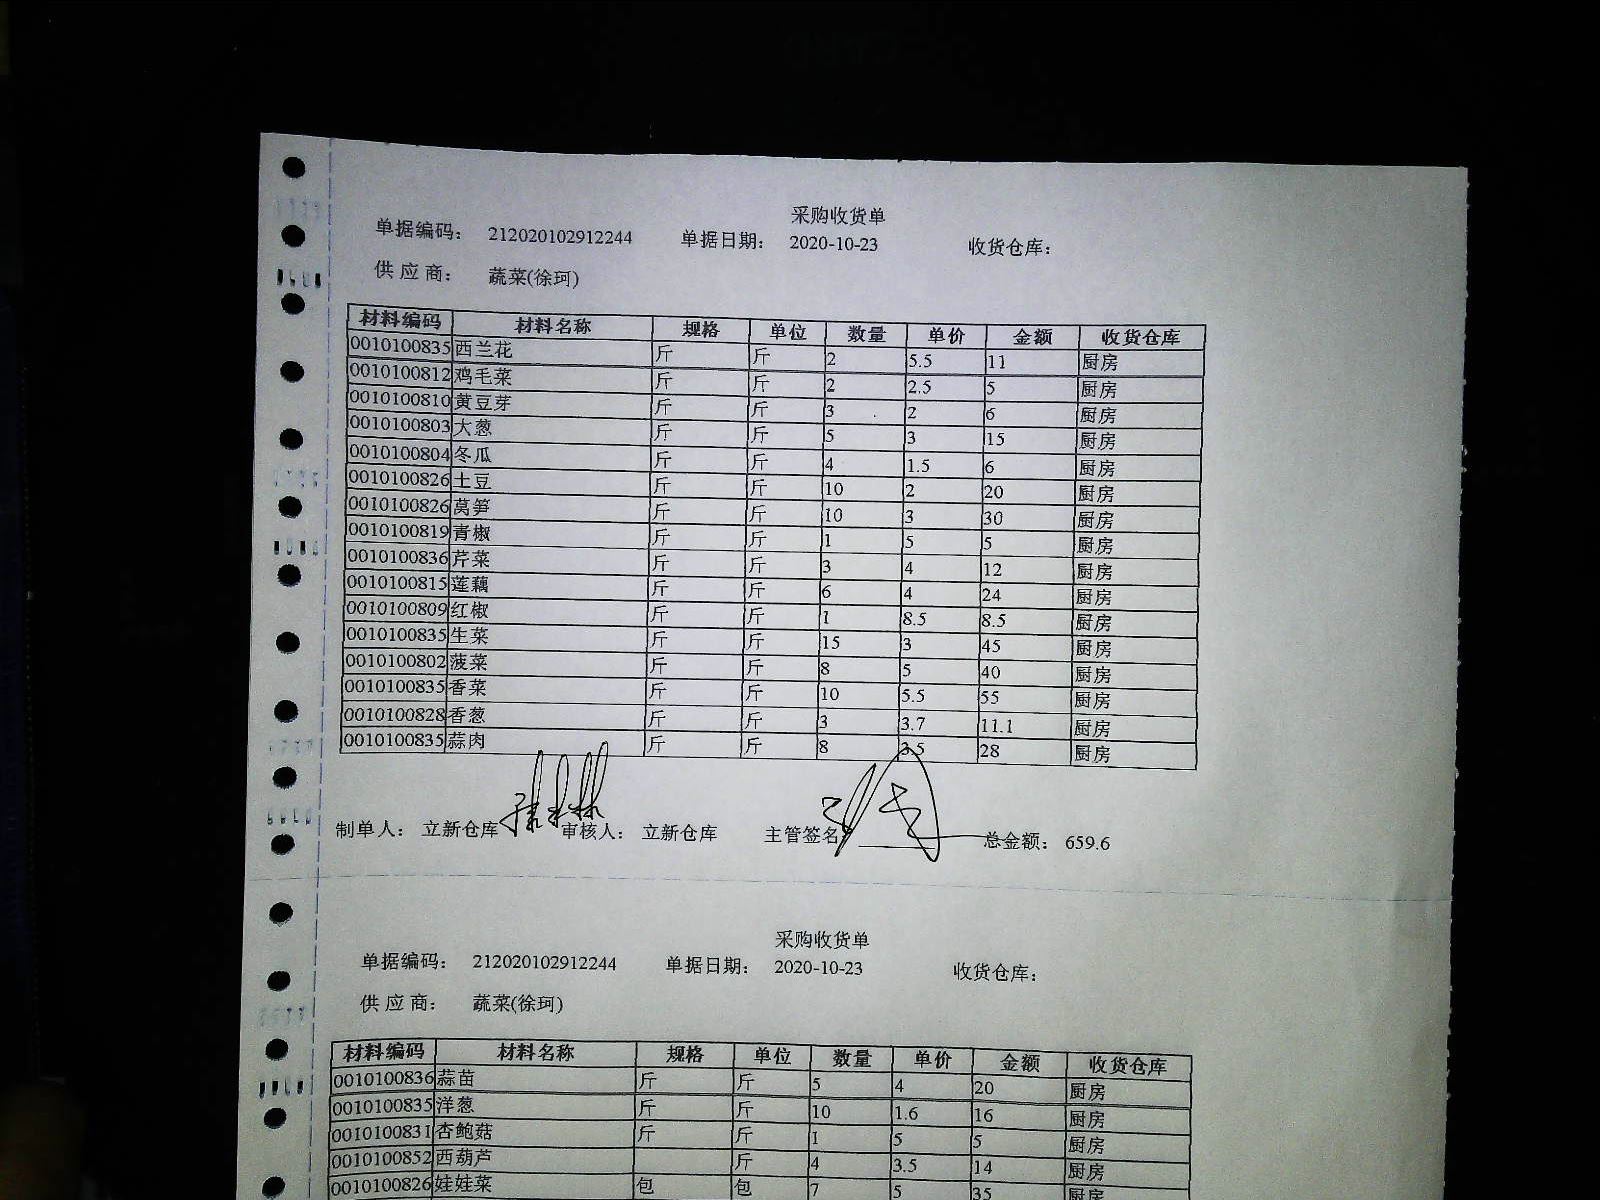 采购收货单
单据编码： 212020102912244 单据日期： 2020-10-23 收货仓库：
供 应 商： 蔬菜(徐珂)
材料编码 材料名称 规格 单位 数量 单价 金额 收货仓库
0010100835 西兰花 斤 斤 2 5.5 11 厨房
0010100812 鸡毛菜 斤 斤 2 2.5 5 厨房
0010100810 黄豆芽 斤 斤 3 2 6 厨房
0010100803 大葱 斤 斤 5 3 15 厨房
0010100804 冬瓜 斤 斤 4 1.5 6 厨房
0010100826 土豆 斤 斤 10 2 20 厨房
0010100826 莴笋 斤 斤 10 3 30 厨房
0010100819 青椒 斤 斤 1 5 5 厨房
0010100836 芹菜 斤 斤 3 4 12 厨房
0010100815 莲藕 斤 斤 6 4 24 厨房
0010100809 红椒 斤 斤 1 8.5 8.5 厨房
0010100835 生菜 斤 斤 15 3 45 厨房
0010100802 菠菜 斤 斤 8 5 40 厨房
0010100835 香菜 斤 斤 10 5.5 55 厨房
0010100828 香葱 斤 斤 3 3.7 11.1 厨房
0010100835 蒜肉 斤 斤 8 3.5 28 厨房
制单人： 立新仓库 审核人： 立新仓库 主管签名 总金额： 659.6
采购收货单
单据编码： 212020102912244 单据日期： 2020-10-23 收货仓库：
供 应 商： 蔬菜(徐珂)
材料编码 材料名称 规格 单位 数量 单价 金额 收货仓库
0010100836 蒜苗 斤 斤 5 4 20 厨房
0010100835 洋葱 斤 斤 10 1.6 16 厨房
0010100831 杏鲍菇 斤 斤 1 5 5 厨房
0010100852 西葫芦 斤 4 3.5 14 厨房
0010100826 娃娃菜 包 包 7 5 35 厨房